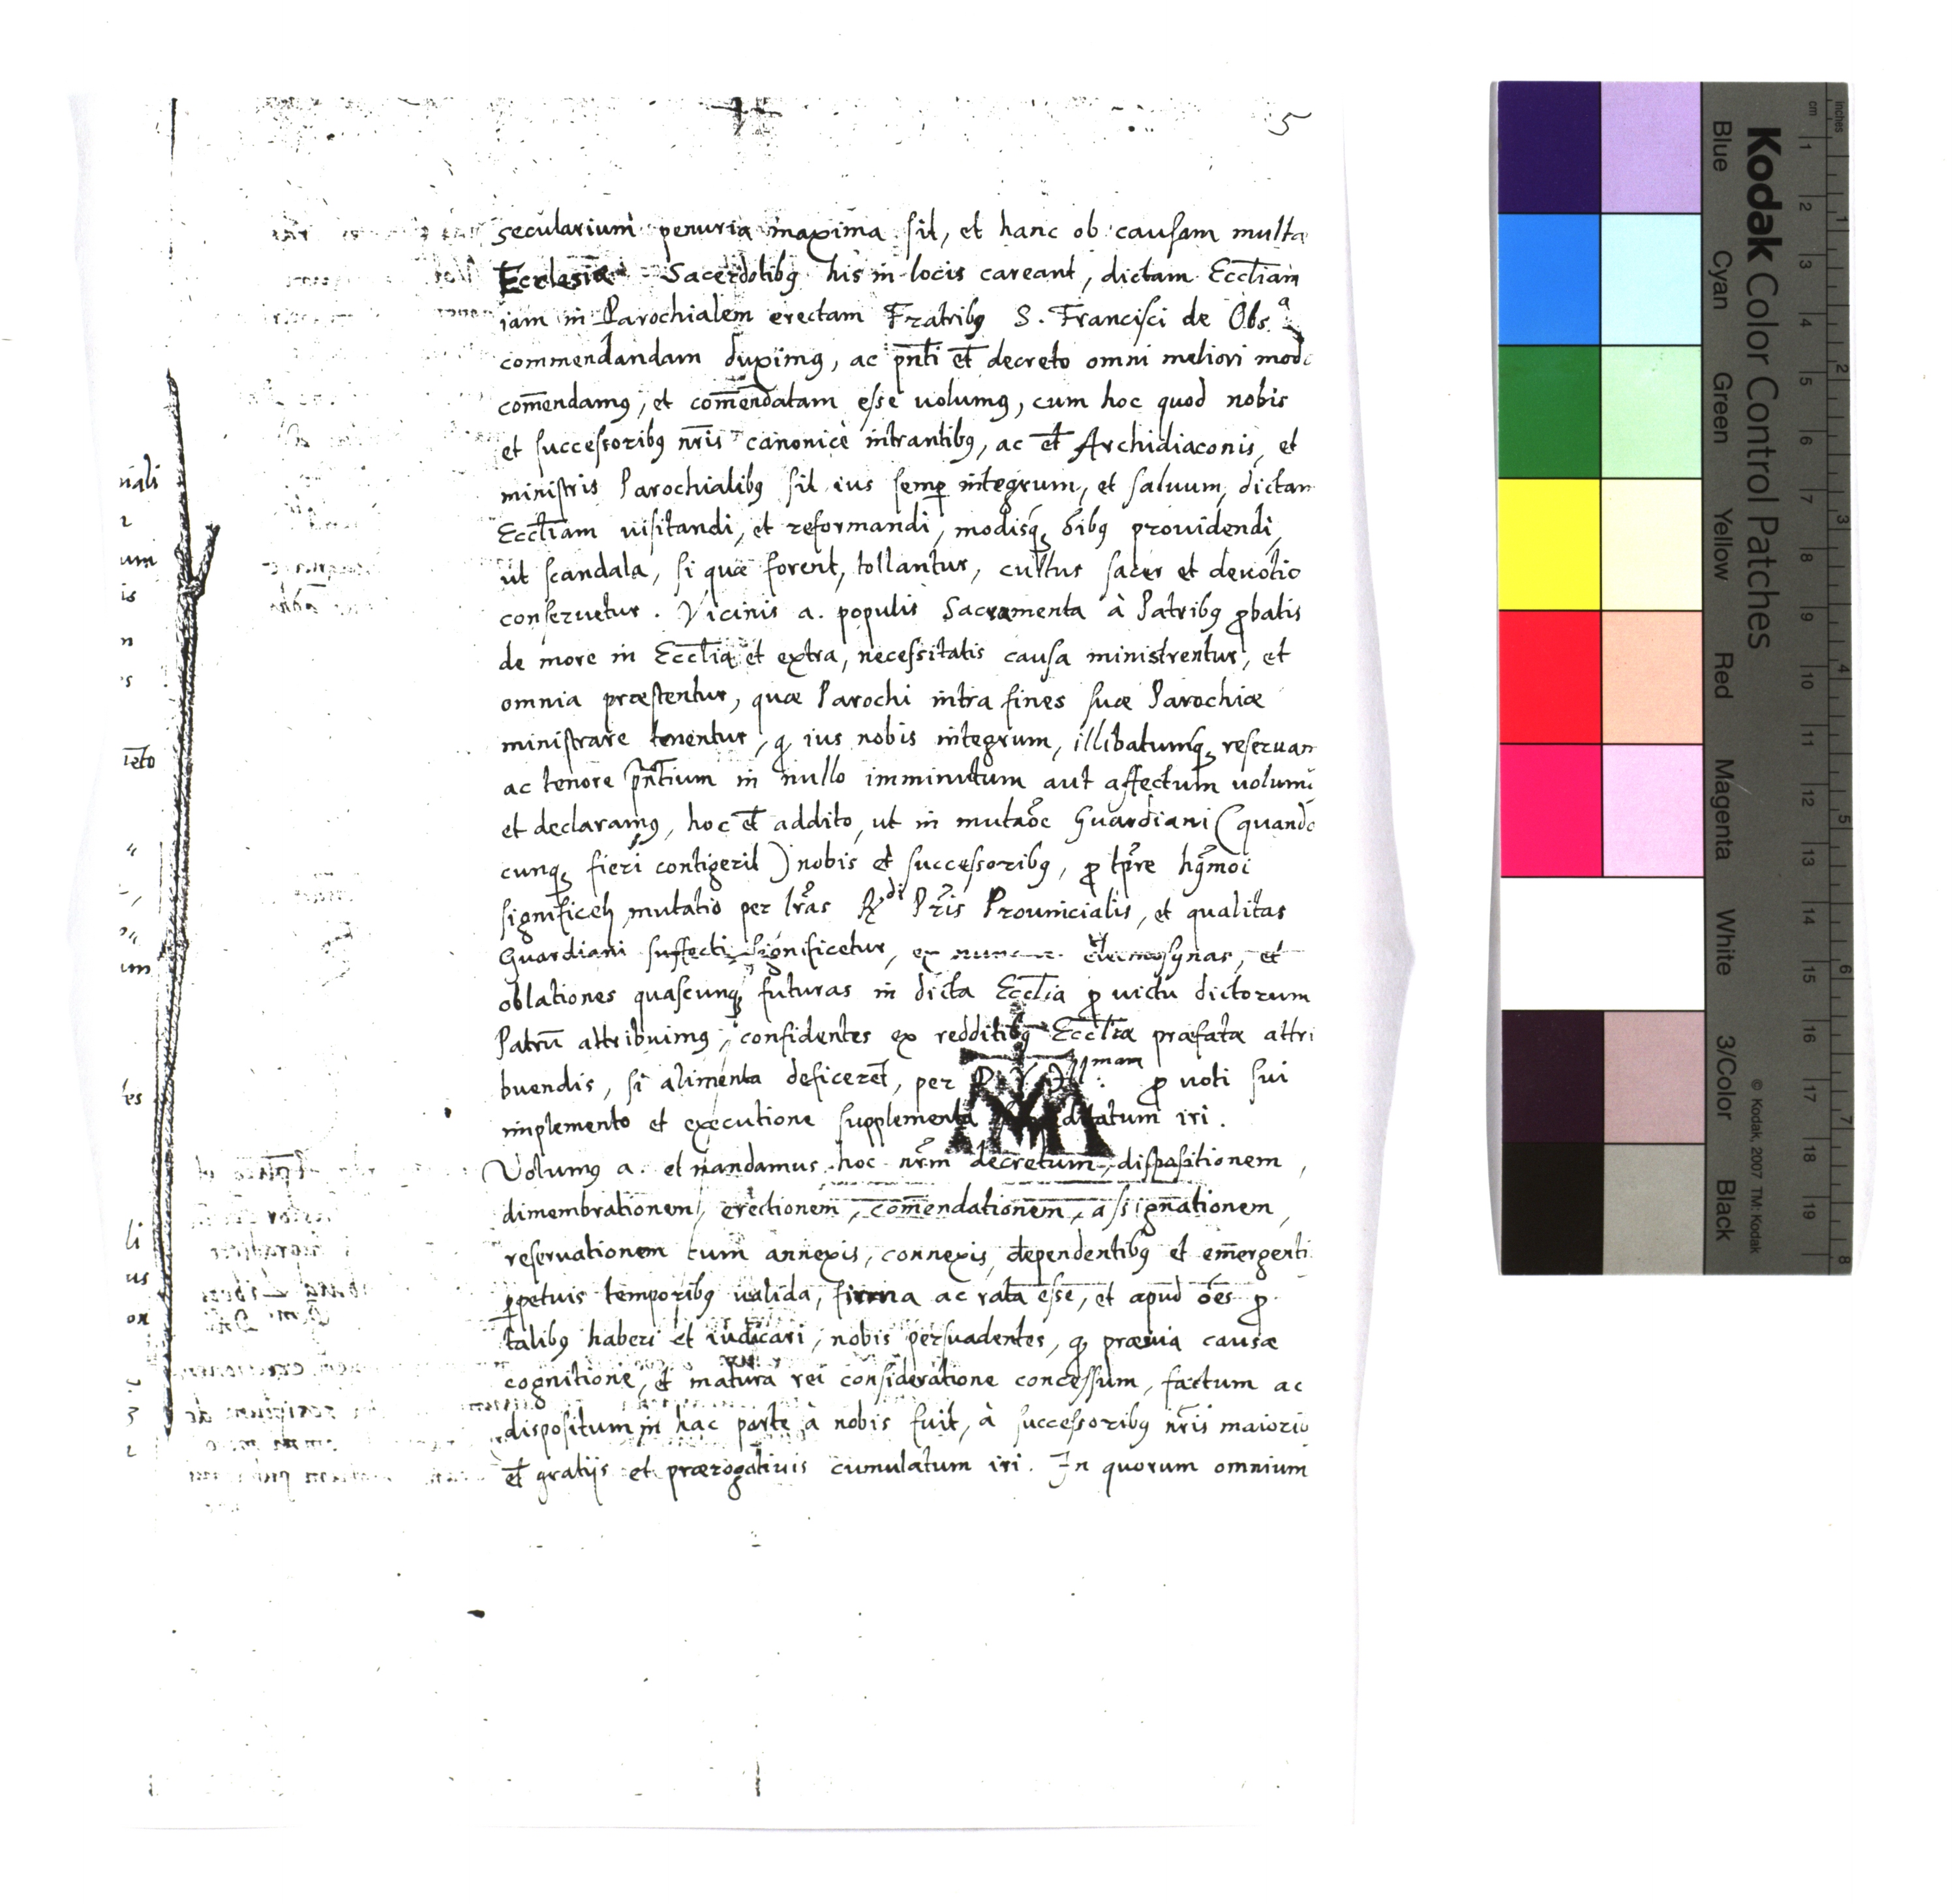 5
secularium penuria maxima sit, et hanc ob causam multa
Ecclesiæ Sacerdotibꝰ his in locis careant, dictam Eccl̄iam
iam in Parochialem erectam Fratribꝰ S. Francisci de Obs.ª
commendandam duximꝰ, ac pn̄ti et̄ decreto omni meliori modo
com̄endamꝰ, et com̄endatam esse uolumꝰ, cum hoc quod nobis
et successoribꝰ nr̄is canonicè intrantibꝰ, ac et̄ Archidiaconis, et
ministris Parochialibꝰ sit ius semꝑ integrum, et saluum, dictam
Eccl̄iam uisitandi, et reformandi, modisqꝫ o͞ibꝰ prouidendi,
ut scandala, si quæ forent, tollantur, cultus sacer et deuotio
conseruetur. Vicinis a. populis Sacramenta à Patribꝰ ꝓbatis
de more in Eccl̄ia et extra, necessitatis causa ministrentur, et
omnia præstentur, quæ Parochi intra fines suæ Parochiæ
ministrare tenentur, qꝫ ius nobis integrum, illibatumqꝫ reseruam
ac tenore pn̄tium in nullo imminutum aut affectum uolumꝰ
et declaramꝰ, hoc et̄ addito, ut in mutao͞e Guardiani (quando
cunqꝫ fieri contigerit) nobis et successoribꝰ, ꝓ tp̄re hꝰmoi
significet mutatio per lr̄as R.di Pr̄is Prouincialis, et qualitas
Guardiani suffecti significetur, ex nunc elemosynas, et
oblationes quascunqꝫ futuras in dicta Eccl̄ia ꝓ uictu dictorum
Patrū attribuimꝰ, confidentes ex redditibꝰ Eccl̄iæ præfatæ attri
buendis, si alimenta deficerēt, per mam ꝓ uoti sui
implemento et executione supplementa iri.
Volumꝰ a. et mandamus hoc nr̄m decretum, dispositionem,
dimembrationem, erectionem, com̄endationem, assignationem,
reseruationem cum annexis, connexis, dependentibꝰ et emergenti
ꝑpetuis temporibꝰ ualida, firma ac rata esse, et apud o͞es ꝓ
talibꝰ haberi et iudicari, nobis persuadentes, qꝫ præuia causæ
cognitione, et matura rei consideratione concessum, factum ac
dispositum in hac parte à nobis fuit, à successoribꝰ nr̄is maiorib
et̄ gratijs et prærogatiuis cumulatum iri. In quorum omnium
nali
um
is
n
ieto
um
es
li
us
on
Kodak Color Control Patches
Blue Cyan Green Yellow Red Magenta White 3/Color Black
© Kodak, 2007 TM: Kodak
inches 1 2 3 4 5 6 7 8
cm 1 2 3 4 5 6 7 8 9 10 11 12 13 14 15 16 17 18 19